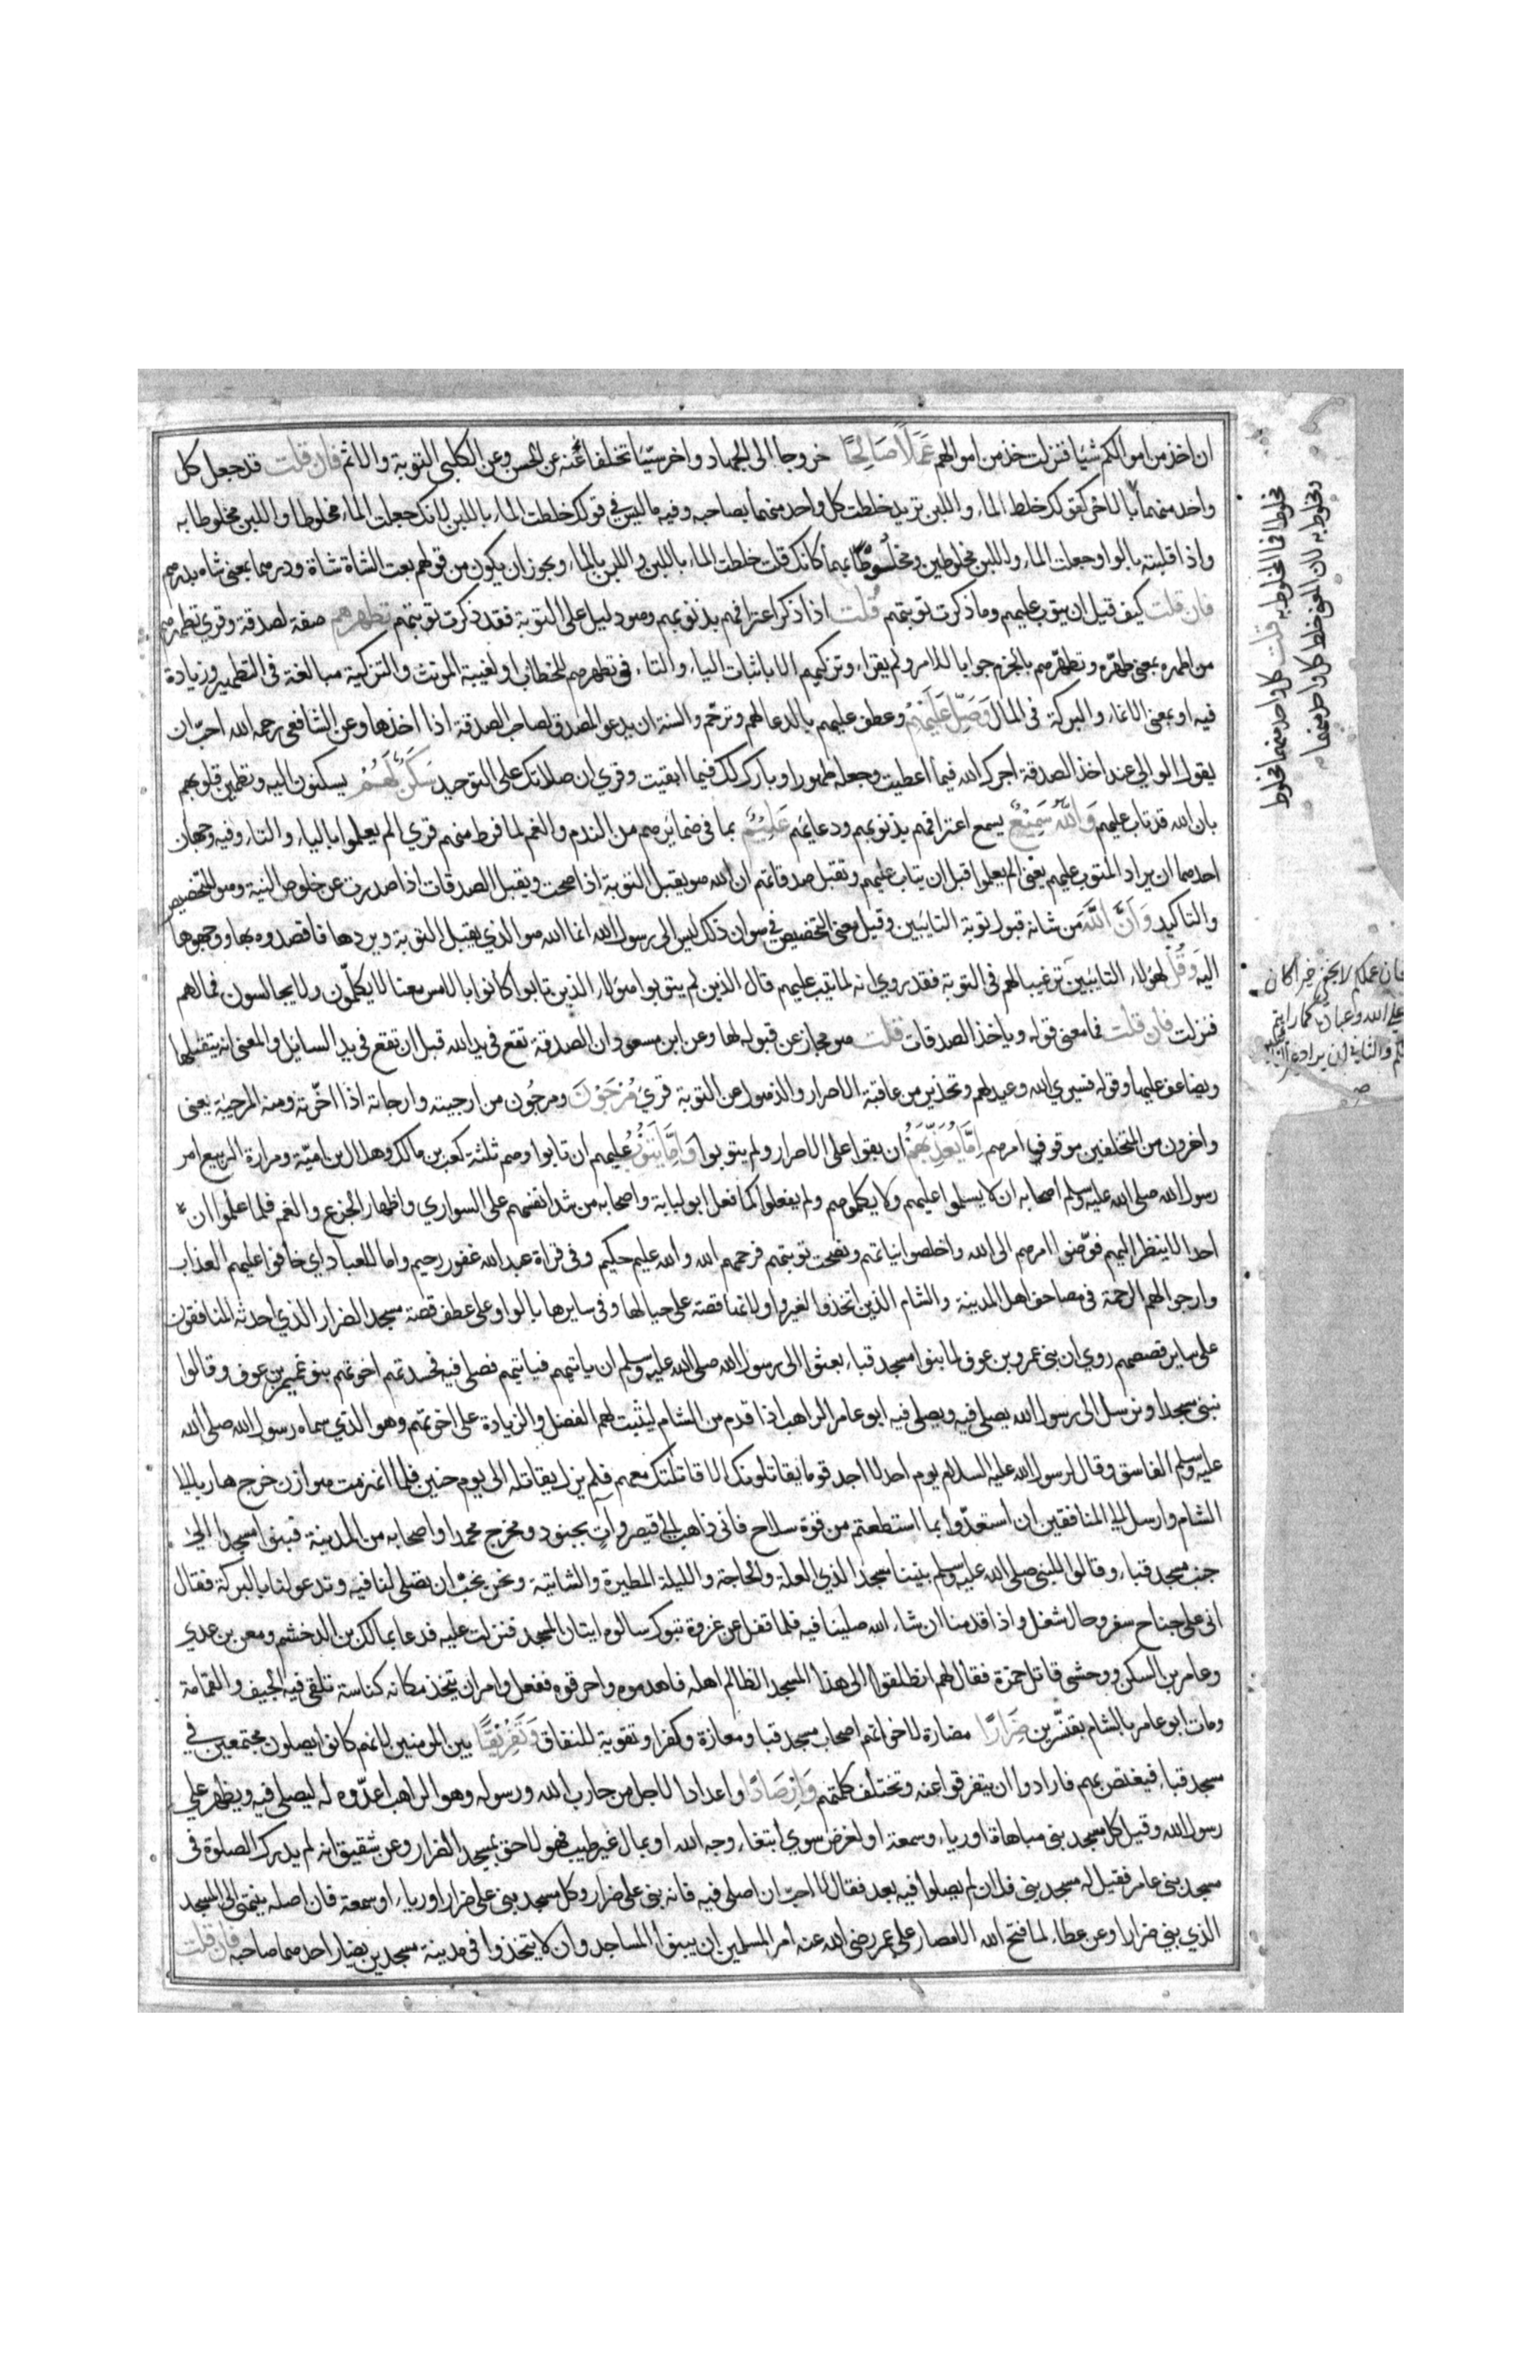 ان اخذ من اموالكم شيا فنزلت خذ من اموالهم عَمَلًا صَالِحًا خروجا الى الجهاد واخر سيّئا تخلفا عنه عن الحسن وعن الكلبي التوبة والاثم فان قلت قد جعل كل
واحد منهما بالاخر كقولك خلط الماء واللبن تريد خلطت كل واحد منهما بصاحبه وفيه ما ليس في قولك خلطت الماء باللبن لانك جعلت الماء مخلوطا واللبن مخلوطا به
واذا قلبته بالواو جعلت الماء واللبن مخلوطين ومخلوطًا بهما كانك قلت خلطت الماء باللبن واللبن بالماء ويجوز ان يكون من قولهم بعت الشاة شاة ودرهما بمعنى شاه بدرهم
فان قلت كيف قيل ان يتوب عليهم وما ذكرت توبتهم قُلت اذا ذكر اعترافهم بذنوبهم وهو دليل على التوبة فقد ذكرت توبتهم تطهرهم صفة لصدقة وقري تطهرهم
من اطهره بمعنى طهّره وتطهّرهم بالجزم جوابا للامر ولم يقراء وتزكيهم الا باثبات الياء والتاء في تطهرهم للخطاب او لغيبة المونث والتزكية مبالغة في التطهير وزيادة
فيه او بمعنى الانماء والبركة في المال وَصَلِّ عَلَيْهِمْ وعطف عليهم بالدعا لهم وترحّم والسنة ان يدعو المصدق لصاحب الصدقة اذا اخذها وعن الشافعي رحمه الله احبّ ان
يقول الوالي عند اخذ الصدقة اجرك الله فيما اعطيت وجعله طهورا وبارك لك فيما ابقيت وقري ان صلاتك على التوحيد سَكَنٌ لَهُمْ يسكنون اليه وتطمين قلوبهم
بان الله قد تاب عليهم وَاللَّهُ سَمِيعٌ يسمع اعترافهم بذنوبهم ودعايهم عَلِيْمٌ بما في ضمايرهم من الندم والغم لما فرط منهم قري الم يعلموا بالياء والتاء وفيه وجهان
احدهما ان يراد المتوب عليهم يعني الم يعلموا قبل ان يتاب عليهم وتقبل صدقاتهم ان الله هو يقبل التوبة اذا صحت ويقبل الصدقات اذا صدرت عن خلوص النية وهو للتخصيص
والتاكيد وَاَنَّ اللَّهَ من شانه قبول توبة التايبين وقيل معنى التخصيص في هو ان ذلك ليس الى رسول الله انما الله هو الذي يقبل التوبة ويردها فاقصدوه بها ووجهوها
اليه وَقُلْ لهولاء التايبين ترغيبا لهم في التوبة فقد روي انه لما تيب عليهم قال الذين لم يتوبوا هولاء الذين تابوا كانوا بالامس معنا لا يكلّمون ولا يجالسون فما لهم
فنزلت فان قلت فما معنى قوله وياخذ الصدقات قلت هو مجاز عن قبوله لها وعن ابن مسعود ان الصدقة تقع في يد الله قبل ان تقع في يد السايل والمعنى انه يتقبلها
ويضاعف عليها وقوله فسيري الله وعيد لهم وتحذير من عاقبة الاصرار والذهول عن التوبة قريَ مُرْجَوْنَ ومرجؤن من ارجيته وارجاته اذا اخّرته ومنه المرجية يعني
واخرون من المتخلفين موقوف امرهم اِمَّا يُعَذِّبَهُمْ ان بقوا على الاصرار ولم يتوبوا وَاِمَّا يَتُوْبُ عليهم ان تابوا وهم ثلثة كعب بن مالك وهلال بن اميّة ومرارة الربيع امر
رسول الله صلى الله عليه وسلم اصحابه ان لا يسلموا عليهم ولا يكلموهم ولم يفعلوا كما فعل ابو لبابة واصحابه من شد انفسهم على السواري واظهار الجزع والغم فلما اعلموا ان
احدا لا ينظر اليهم فوّضوا امرهم الى الله واخلصوا نياتهم ونصحت توبتهم فرحمهم الله والله عليم حكيم وفي قراة عبد الله غفور رحيم واما للعباد اي خافوا عليهم العذاب
وارجوا لهم الرحمة في مصاحف اهل المدينة والشام الذين اتخذوا بغير واو لانها قصة على حيالها وفي سايرها بالواو على عطف قصة مسجد الضرار الذي احدثه المنافقون
على ساير قصصهم روي ان بني عمرو بن عوف لما بنوا مسجد قباء بعثوا الى رسول الله صلى الله عليه وسلم ان ياتيهم فياتيهم فصلى فيه فحسدتهم اخوتهم بنو غنم بن عوف وقالوا
نبني مسجدا ونرسل الى رسول الله يصلي فيه ويصلي فيه ابو عامر الراهب اذا قدم من الشام ليثبت لهم الفضل والزيادة على اخوتهم وهو الذي سماه رسول الله صلى الله
عليه وسلم الفاسق وقال لرسول الله عليه السلام يوم احد لا اجد قوما يقاتلونك الا قاتلتك معهم فلم يزل يقاتله الى يوم حنين فلما انهزمت هوازن خرج هاربا الى
الشام وارسل الى المنافقين ان استعدّوا بما استطعتم من قوة سلاح فاني ذاهب الى قيصر وآتٍ بجنود ومخرج محمدا واصحابه من المدينة فبنوا مسجدا الى
جنب مسجد قباء وقالوا للنبي صلى الله عليه وسلم بنينا مسجدا لذي العلة والحاجة والليلة المطيرة والشاتية ونحن نحبّ ان تصلي لنا فيه وتدعو لنا بالبركة فقال
اني على جناح سفر وحال شغل واذا قدمنا ان شاء الله صلينا فيه فلما قفل عن غزوة تبوك سالوه ايتان المسجد فنزلت عليه فدعا بمالك بن الدخشم ومعن بن عدي
وعامر بن السكن ووحشي قاتل حمزة فقال لهم انطلقوا الى هذا المسجد الظالم اهله فاهدموه واحرقوه ففعل وامر ان يتخذ مكانه كناسة تلقى فيه الجيف والقمامة
ومات ابو عامر بالشام بقنّسرين ضِرَارًا مضارة لاخواتهم اصحاب مسجد قبا ومعازة وكفرا وتقوية للنفاق وَتَفْرِيْقًا بين المومنين لانهم كانوا يصلون مجتمعين في
مسجد قباء فيغتص بهم فارادوا ان يتفرقوا عنه وتختلف كلمتهم وَاِرْصَادًا واعدادا لاجل من حارب الله ورسوله وهو الراهب اعدّوه له ليصلي فيه ويظهر على
رسول الله وقيل كل مسجد بني مباهاة او رياء وسمعة او لغرض سوي ابتغاء وجه الله او بمال غير طيب فهو لاحق بمسجد الضرار وعن شقيق انه لم يدرك الصلوة في
مسجد بني عامر فقيل له مسجد بني فلان لم يصلوا فيه بعد فقال لا احبّ ان اصلي فيه فانه بني على ضرار وكل مسجد بني على ضرار او رياء او سمعة فان اصله ينتهي الى المسجد
الذي بني ضرارا وعن عطاء لما فتح الله الامصار على عمر رضي الله عنه امر المسلمين ان يبنوا المساجد وان لا يتخذوا في مدينة مسجدين يضار احدهما صاحبه فان قلت
مخلوطا فما المخلوط به قلت كل واحد منهما مخلوط
ومخلوط به لان المعنى خلط كل واحد منهما
فان عملكم لا يخفى خيرا كان
على الله وعباده كما رايتم
والثاني ان يراد غير التايبين